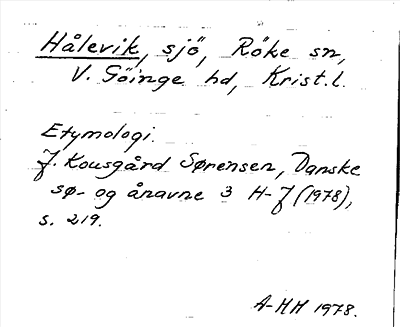 Hålevik, sjö, Röke sn,
V. Göinge hd, Krist. l.
Etymologi.
J. Kousgård Sørensen, Danske
sø- og ånavne 3 H-J (1978),
s. 219.
A-HH 1978.